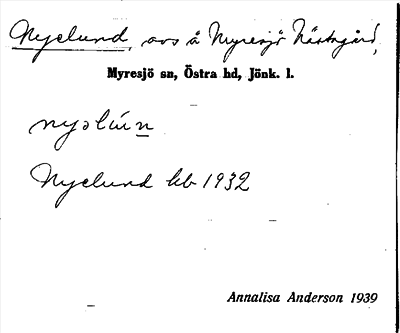 Nyelund, avs å Myresjö Västergård,
Myresjö sn, Östra hd, Jönk. l.
nyəlún
Nyelund kb 1932
Annalisa Anderson 1939